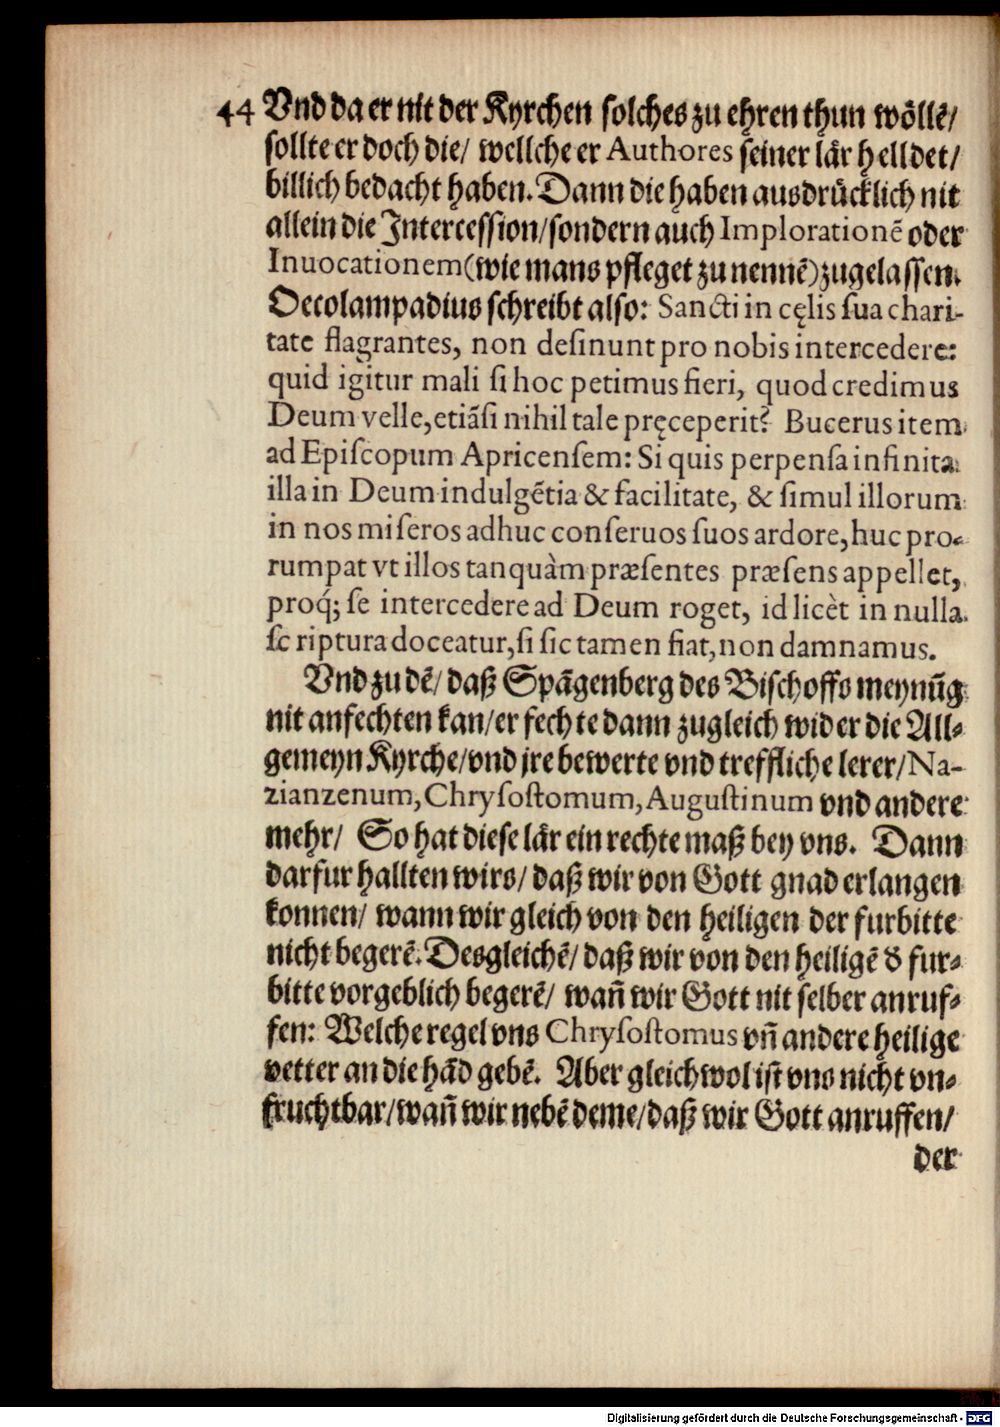 44 Vnd da er nit der Kyrchen solches zu ehren thun wöllē/
sollte er doch die/ wellche er Authores seiner lär helldet/
billich bedacht haben. Dann die haben ausdrücklich nit
allein die Intercession/sondern auch Implorationē oder
Inuocationem (wie mans pfleget zu nennē) zugelassen.
Oecolampadius schreibt also: Sancti in cęlis ſua chari-
tate flagrantes, non deſinunt pro nobis intercedere:
quid igitur mali ſi hoc petimus fieri, quod credimus
Deum velle, etiāſi nihil tale pręceperit? Bucerus item
ad Epiſcopum Apricenſem: Si quis perpenſa infinita
illa in Deum indulgētia & facilitate, & ſimul illorum
in nos miſeros adhuc conſeruos ſuos ardore, huc pro-
rumpat vt illos tanquàm præſentes præſens appellet,
proq́; ſe intercedere ad Deum roget, id licèt in nulla
ſcriptura doceatur, ſi ſic tamen fiat, non damnamus.
Vnd zu dē/ daß Spāgenberg des Bischoffs meynūg
nit anfechten kan/er fechte dann zugleich wider die All-
gemeyn Kyrche/vnd jre bewerte vnd treffliche lerer/Na-
zianzenum, Chryſoſtomum, Auguſtinum vnd andere
mehr/ So hat diese lär ein rechte maß bey vns. Dann
darfur hallten wirs/ daß wir von Gott gnad erlangen
konnen/ wann wir gleich von den heiligen der furbitte
nicht begerē. Desgleichē/ daß wir von den heiligē d' fur-
bitte vorgeblich begerē/ wañ wir Gott nit selber anruf-
fen: Welche regel vns Chryſoſtomus vñ andere heilige
vetter an die hād gebē. Aber gleichwol ist vns nicht vn-
fruchtbar/wañ wir nebē deme/daß wir Gott anruffen/
der
Digitalisierung gefördert durch die Deutsche Forschungsgemeinschaft - DFG